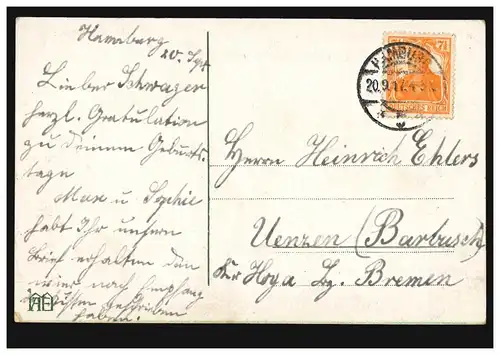 Hamburg
20. Sept
Lieber Schwager
herzl. Gratulation
zu deinem Geburts-
tage
Max u. Sophie
habt Ihr unsern
Brief erhalten den
wir nach Empfang
geschrieben
haben.
HAMBURG
20.9.17.
7½
DEUTSCHES REICH
Herrn Heinrich Ehlers
Uenzen (Barbusch)
Kr Hoya Bz. Bremen
AE